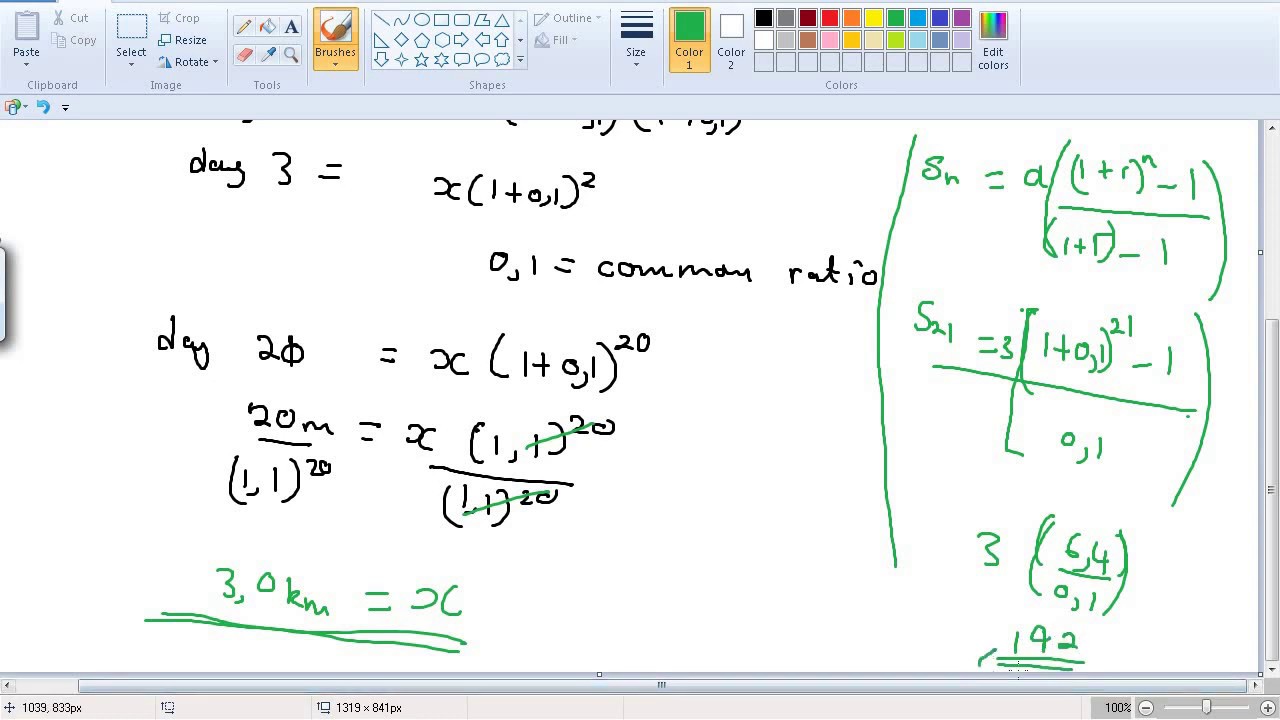 Paste
Cut
Copy
Clipboard
Select
Crop
Resize
Rotate
Image
A
Tools
Brushes
Shapes
Outline
Fill
Size
Color 1
Color 2
Edit colors
Colors
day 3 = x(1+0,1)²
0,1 = common ratio
day 20 = x(1+0,1)²⁰
20m = x (1,1)²⁰
(1,1)²⁰ (1,1)²⁰
3,0km = x
Sn = a((1+r)ⁿ - 1)
(1+r) - 1
S₂₁ = 3[(1+0,1)²¹ - 1
0,1
3 (6,4)
0,1
192
1039, 833px
1319 × 841px
100%